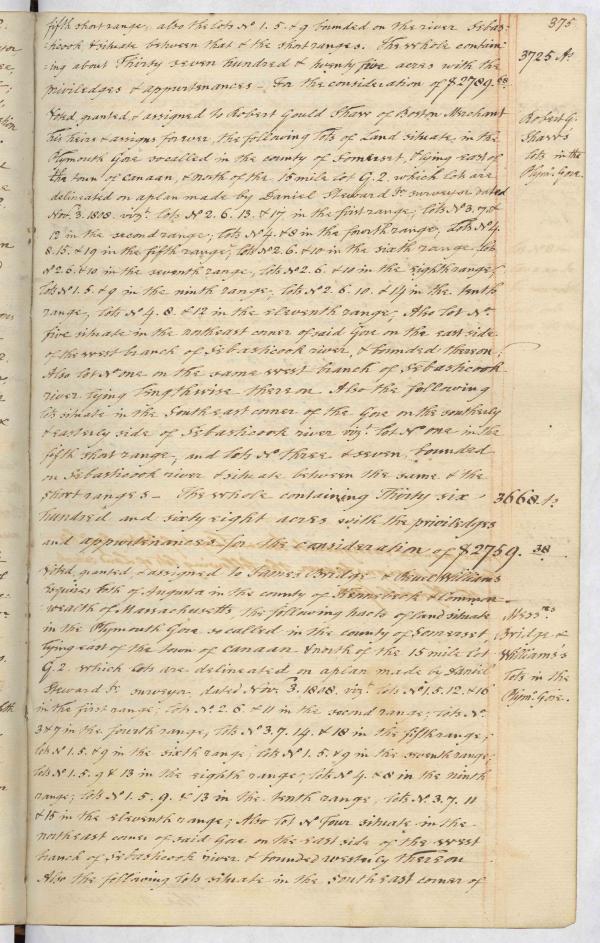 375
fifth short range, also the lots No 1. 5. & 9 bounded on the river Sebas-
ticook & situate between that & the short ranges. The whole contain-
ing about Thirty seven hundred & twenty five acres with the
3725 As
priviledges & appurtenances - For the consideration of $2789.
Voted, granted & assigned to Robert Gould Shaw of Boston Merchant
his heirs & assigns forever, the following lots of Land situate in the
Plymouth Gore so called in the county of Somerset, lying east of
the town of Canaan, & north of the 15 mile lot G. 2. which lots are
delineated on a plan made by Daniel Steward Jr surveyor dated
Robert G.
Shaw's
lots in the
Plym. Gore
Nov. 3. 1808. vizt. lots No 2. 6. 13. & 17 in the first range; lots No 3. 7. &
12 in the second range; lots No 4. & 8 in the fourth range; lots No 4.
8. 15. & 19 in the fifth range; lots 2. 6. & 10 in the sixth range lots
No 2. 6. & 10 in the seventh range, lots No 2. 6. & 10 in the eighth range;
lots No 1. 5. & 9 in the ninth range; lots No 2. 6. 10. & 14 in the tenth
range, lots No 4. 8. & 12 in the eleventh range; Also lot No
five situate in the northeast corner of said Gore on the east side
of the west branch of Sebasticook river, & bounded thereon;
Also lot No one on the same west branch of Sebasticook
river lying lengthwise thereon Also the following
lots situate in the South east corner of the Gore on the southerly
& easterly side of Sebasticook river vizt. lot No one in the
fifth short range, and lots No three & seven, bounded
on Sebasticook river & situate between the same & the
short ranges - The whole containing Thirty six
3668 As
hundred and sixty eight acres with the priviledges
and appurtenances for the consideration of $2759. 38
Voted, granted & assigned to James Bridge & Reuel Williams
Esquires both of Augusta in the county of Kennebeck & Common-
wealth of Massachusetts the following tracts of land situate
in the Plymouth Gore so called in the county of Somerset,
lying east of the town of Canaan & north of the 15 mile lot
Messrs
Bridge &
Williams's
lots in the
Plym. Gore.
G. 2. which lots are delineated on a plan made by Daniel
Steward Jr surveyor, dated Nov. 3. 1808, vizt. lots No 1. 5. 12. & 16
in the first range; lots No. 2. 6 & 11 in the second range; lots No.
3 & 7 in the fourth range, lots No 3. 7. 14. & 18 in the fifth range;
lots No 1. 5. & 9 in the sixth range; lots No 1. 5. & 9 in the seventh range;
lots No 1. 5. 9 & 13 in the eighth range; lots No 4. & 8 in the ninth
range; lots No 1. 5. 9. & 13 in the tenth range, lots No. 3. 7. 11
& 15 in the eleventh range; Also lot No four situate in the
northeast corner of said Gore on the east side of the west
branch of Sebasticook river & bounded westerly thereon
Also the following lots situate in the southeast corner of